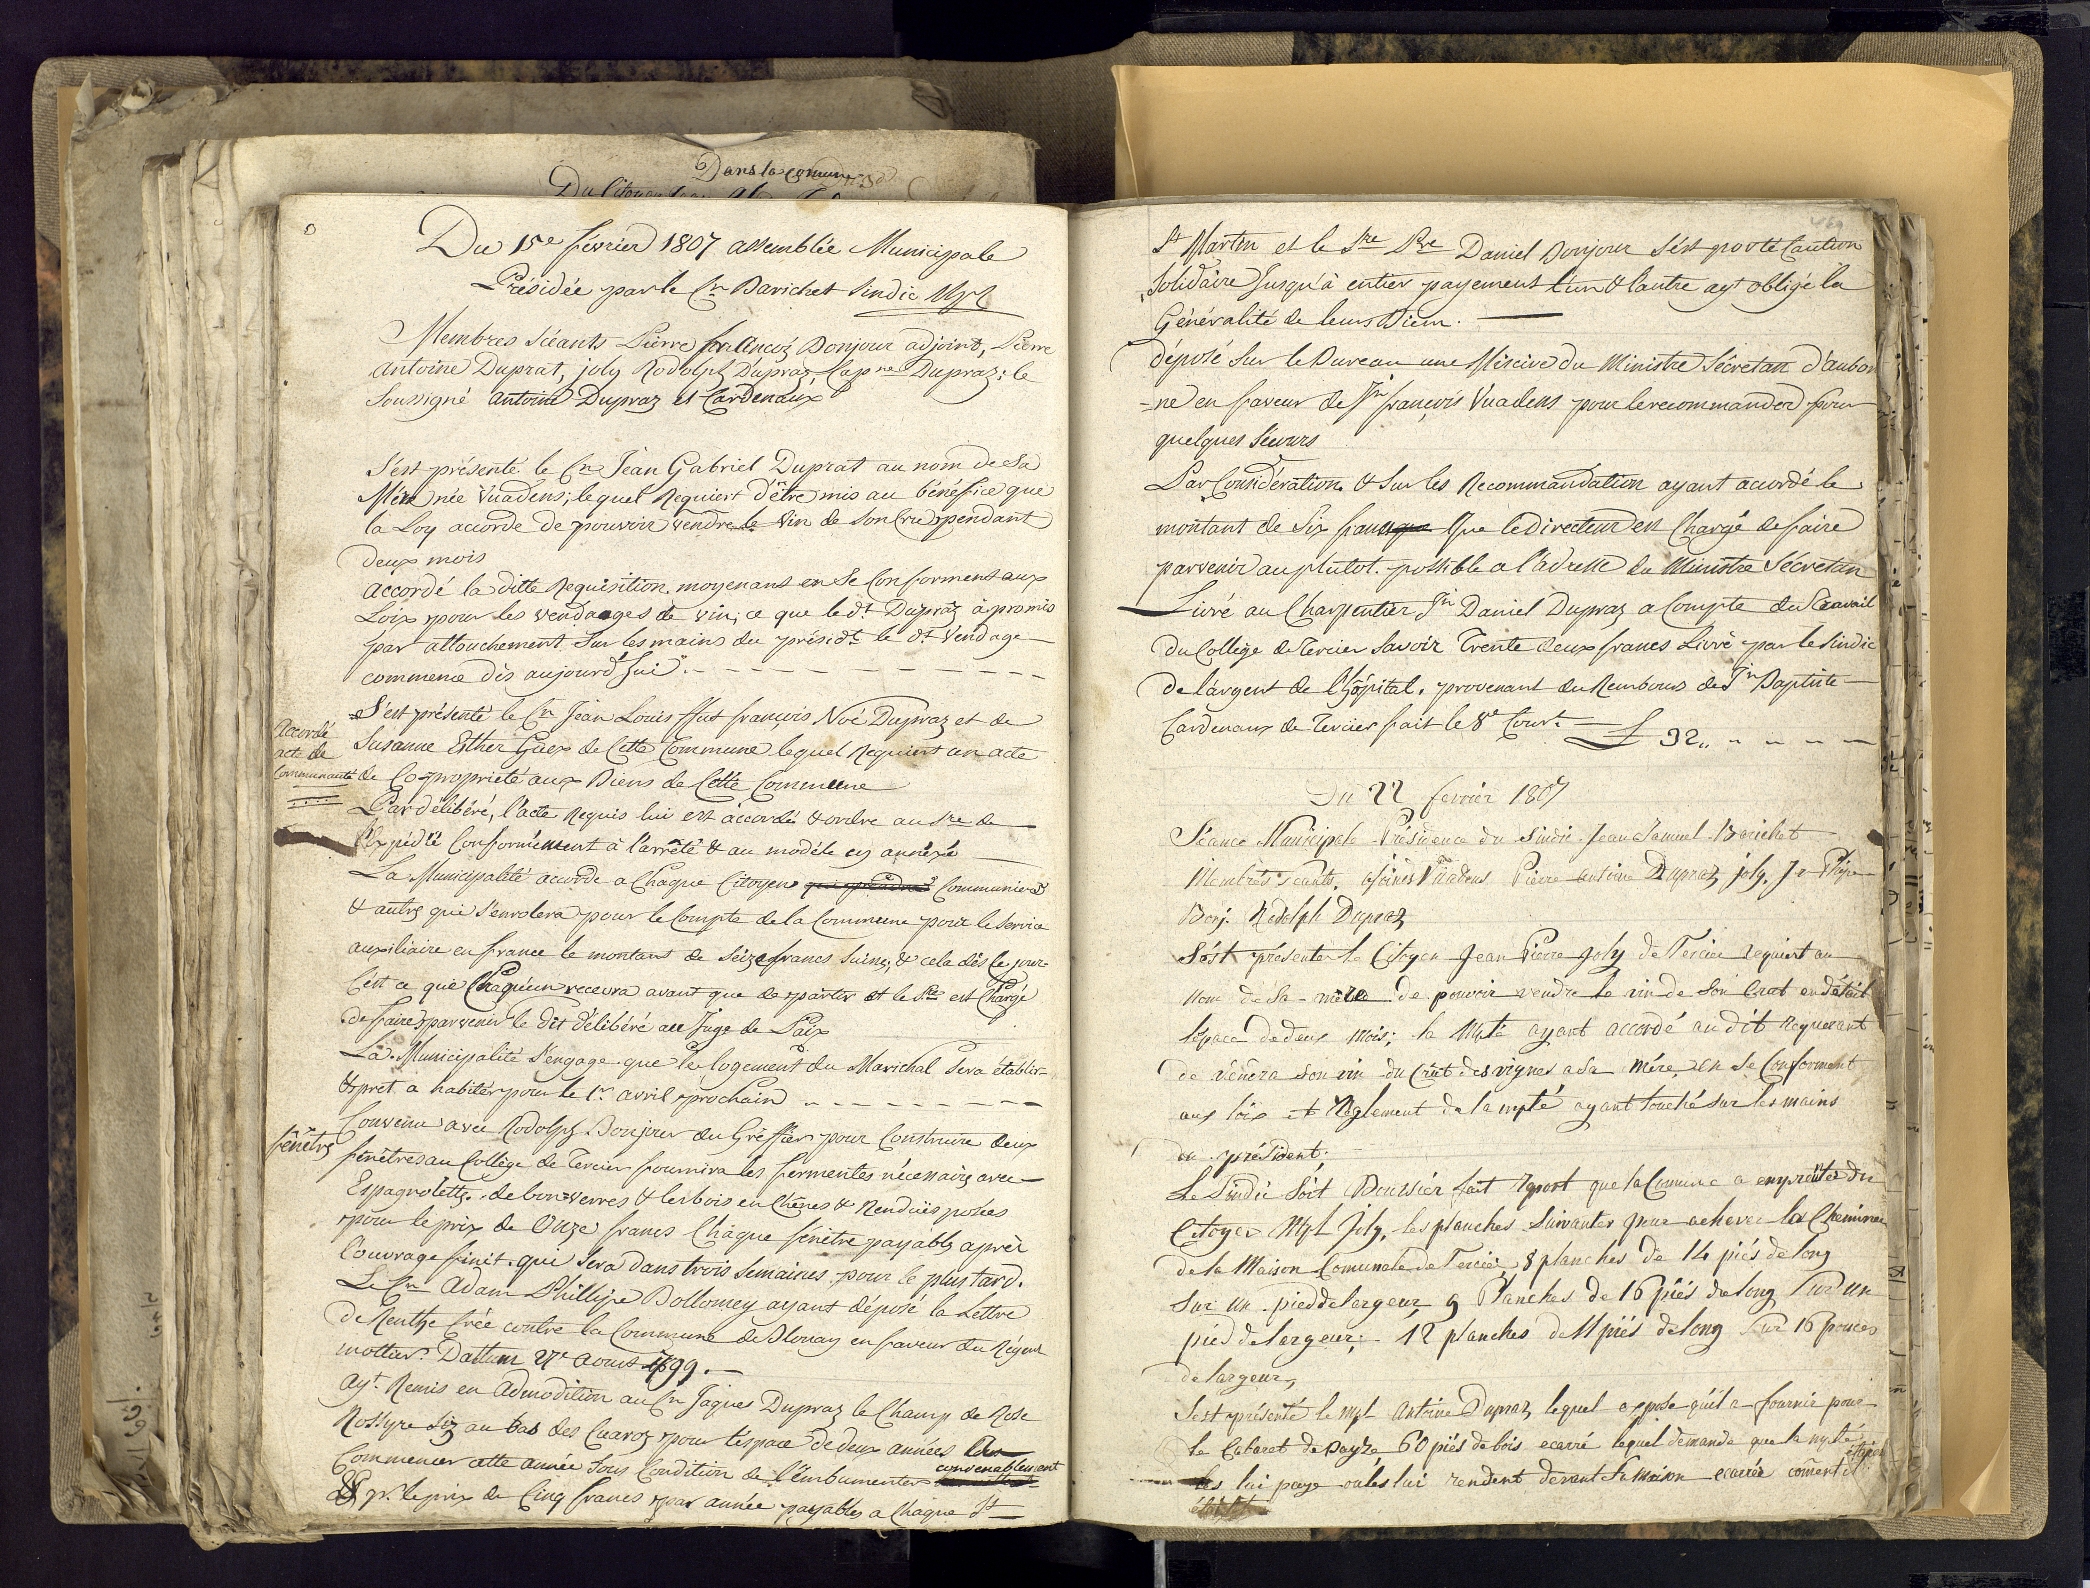 Dans la comune
Du 15e février 1807 assemblée Municipale
Présidée par le Cn Barichet Sindic Mpl
Membres Séants Pierre françoi Bonjour adjoint, Pierre
Antoine Duprat, joly Rodolph Dupraz, Dupraz; le
Soussigné Antoine Dupraz et Cardenaux
S'est présenté le Cn Jean Gabriel Duprat au nom de Sa
Mére née Vuadens; lequel Requiert d'être mis au bénéfice que
la Loy accorde de pouvoir vendre le vin de Son Cru pendant
deux mois
accordé la ditte Requisition moyenant en Se Conforment aux
Loix pour les vendages de vin, ce que le dt Dupraz à promis
par attouchement Sur les mains du présidt le dt Vendage
commence dès aujourd'hui
S'est présenté le Cn Jean Louis ffut françois Noé Dupraz et de
Susanne Esther Guex de Cette Commune lequel Requiert un acte
de Copropriété aux Biens de Cette Commune
Accordé
acte de
Communauté
Par délibéré, l'acte Requis lui est accordé & ordre au Sre de
l'Expédié Conformément à l'arrêté & au modéle cy annéxé
La Municipalité accorde a Chaque Citoyen Communier
& autre qui S'enrolera pour le Compte de la Commune pour le Service
auxiliaire en france le montant de Séize francs Suine, & cela dès Ce jour
C'est ce que Chaquun recevra avant que de partir et le Sre est Chargé
de faire parvenir le dit délibéré au Juge de Paix
La Municipalité S'engage que le logement du Marichal Sera établir
& pret a habiter pour le 1r avril prochain
fenêtre
Convenu avec Rodolph Bonjour du Gréffier pour Construire deux
fenêtres au Collège de Tercier fournira les fermentes nécessaire avec
Espagnolette, de bon Verres & les bois en Chênes & Rendües posées
pour le prix de Onze francs Chaque fenêtre payable après
l'ouvrage finit qui Sera dans trois Semaines pour le plus tard.
Le Cn Adam Phillipe Dollomey ayant déposé la Lettre
de Renthe Crée contre la Commune de Blonay en faveur du Régent
mottier. Dattum 27e Aoust 1699.
ayt Remis en Admodition au Cn Jaques Dupraz le Champ de Rose
Rossyre Siz au bas des Cuaroz pour l'espace de deux années
Commencer cette année Sous Condition de l'embumenter convenablement
& pr le prix de Cinq francs par année payables a Chaque St
St Martin et le Sre Daniel Bonjour S'est porté Caution
Solidaire Jusqu'à entier payement L'un & l'autre ayt obligé la
Généralité de leurs Biens.
déposé Sur le Bureau une Miscive du Ministre Sécretan d'aubon
=ne en faveur de Jn françois Vuadens pour le recommander pour
quelques Sécours
Par Considération & Sur les Recommandation ayant acordé le
montant de Six francs Que le directeur est Chargé de faire
parvenir au plutot possible a l'adresse du Ministre Sécretan
Livré au Charpentier Jn Daniel Dupraz a Compte du Travail
du Collège de Tercier Savoir Trente deux francs Livré par le Sindic
de l'argent de l'hôpital provenant du Rembours de Jn Baptiste
Cardenaux de Tercier fait le 8e Court £ 32
Du 22 fevrier 1807
Séance Municipale Présidence du Sindic Jean Samuel Barichet
Membres Séants, Vuadens Pierre antoine Dupraz joly, Jn Phipe
Bonj. Rodolph Dupraz
S'est présenter le Citoyen Jean Pierre Joly de Tercier requiert au
nom de Sa mère de pouvoir vendre le vin de Son Crut en détail
l'espace de deux mois; la Mpté ayant accordé au dit Requerant
de vendra Son vin du Crut des vignes a Sa mére en Se Conforment
aux lois et Réglement de la mpté ayant touché Sur les mains
du président.
Le Sindic Boursier fait raport que la Comune a emprunter du
Citoyen Mpl Joly, les planches Suivantes pour achever la Cheminee
de la Maison Comunale de Tercier, 8 planches de 14 piés de long
Sur un pied de largeur, 9 Planches de 16 piés de long Sur un
pied de largeur; 12 planches de 11 piés de long Sur 16 pouces
de largeur,
S'est présenté le Mpl Antoine Dupraz lequel expose qu'il a fournir pour
le Cabaret de 60 piés de bois ecarré lequel demande que la mpté
les lui paye ou les lui rendent devant Sa maison ecarrée coment il